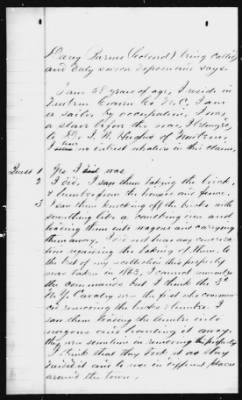 Davy Purvis (Colored) being called
and duly sworn deposeth says.
I am 58 years of age, I reside in
Newbern Craven Co N.C., I am
a sailor by occupation, I was
a slave before the war, I
to Dr. I. H. Hughes of Newbern,
I have no interest whatever in this claim.
Quest 1 Yes I was
2 I did. I saw them taking the brick
& lumber from the houses and fence.
3 I saw them knocking off the bricks with
something like a and
loading them into wagons and carrying
them away. I did not hear any
remarks the taking of them to
the best of my recollection this property
was taken in 1863, I cannot
the commands but I think the 3rd
N.Y. Cavalry was the first who commenced
removing the bricks & lumber. I
saw them loading the lumber into
wagons and hauling it away.
they were sometime in removing the property
I think that they took it as they
needed it and to use in different places
around the town.